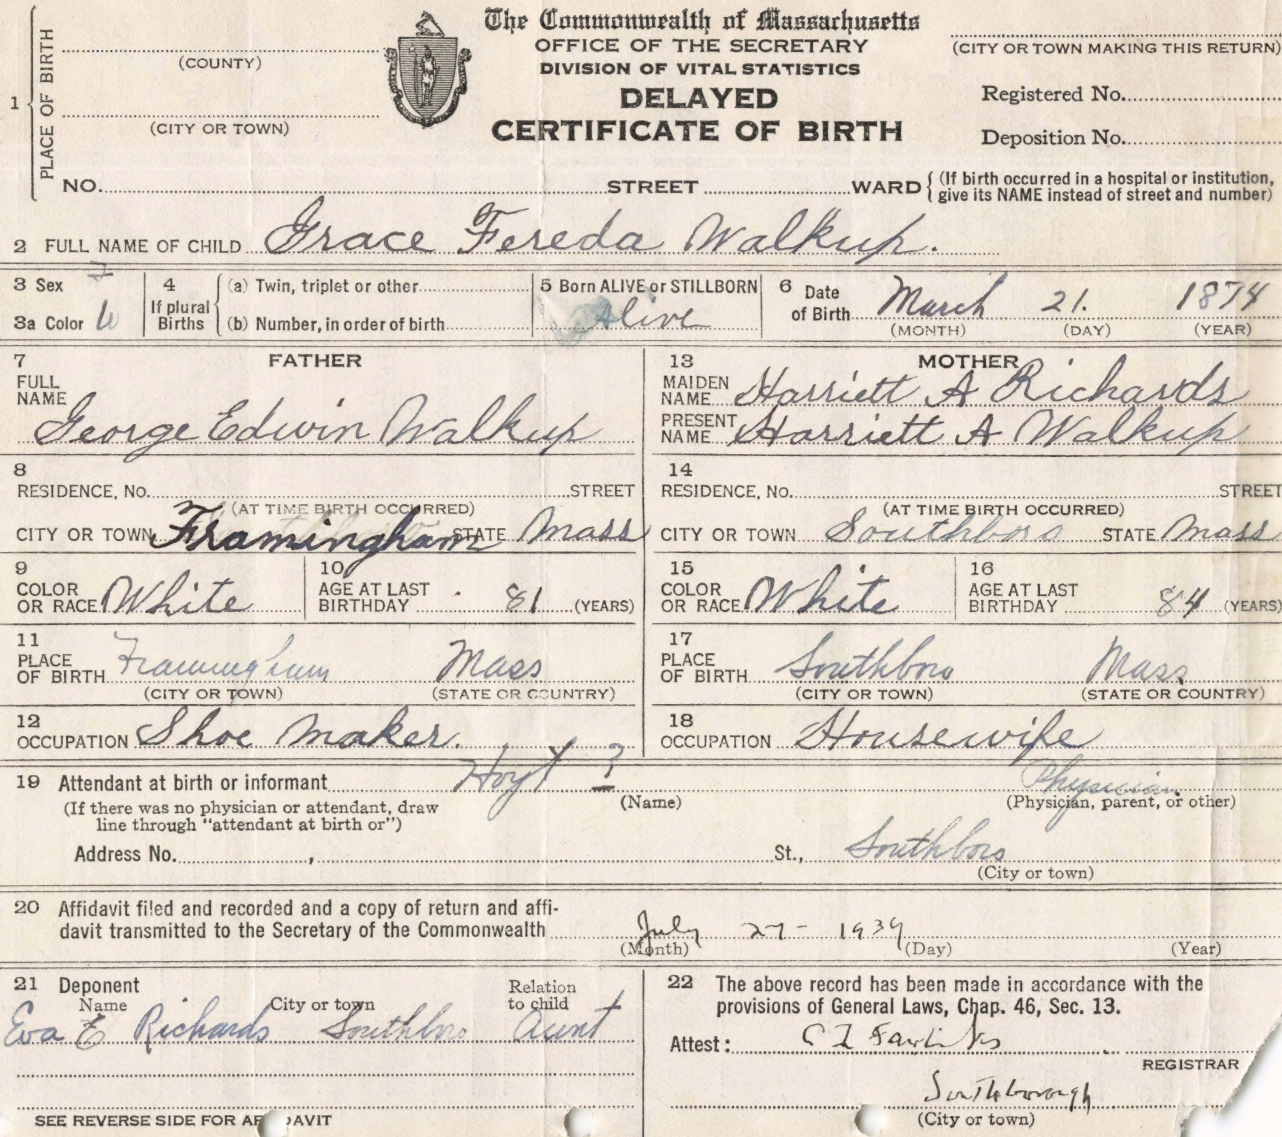 The Commonwealth of Massachusetts
OFFICE OF THE SECRETARY
DIVISION OF VITAL STATISTICS
DELAYED
CERTIFICATE OF BIRTH
1 PLACE OF BIRTH
(COUNTY)
(CITY OR TOWN)
(CITY OR TOWN MAKING THIS RETURN)
Registered No.
Deposition No.
NO. STREET WARD (If birth occurred in a hospital or institution,
give its NAME instead of street and number)
2 FULL NAME OF CHILD Grace Fereda Walkup.
3 Sex F
3a Color W
4 If plural Births
(a) Twin, triplet or other
(b) Number, in order of birth
5 Born ALIVE or STILLBORN
Alive
6 Date of Birth March 21. 1874
(MONTH) (DAY) (YEAR)
7 FATHER
FULL NAME
George Edwin Walkup
8
RESIDENCE, No. STREET
(AT TIME BIRTH OCCURRED)
CITY OR TOWN Framingham STATE Mass
9 COLOR OR RACE White
10 AGE AT LAST BIRTHDAY 81 (YEARS)
11 PLACE OF BIRTH Framingham Mass
(CITY OR TOWN) (STATE OR COUNTRY)
12 OCCUPATION Shoe Maker.
13 MOTHER
MAIDEN NAME Harriett A Richards
PRESENT NAME Harriett A Walkup
14
RESIDENCE, No. STREET
(AT TIME BIRTH OCCURRED)
CITY OR TOWN Southboro STATE Mass
15 COLOR OR RACE White
16 AGE AT LAST BIRTHDAY 84 (YEARS)
17 PLACE OF BIRTH Southboro Mass.
(CITY OR TOWN) (STATE OR COUNTRY)
18 OCCUPATION Housewife
19 Attendant at birth or informant Hoyt ? Physician
(Name) (Physician, parent, or other)
(If there was no physician or attendant, draw
line through "attendant at birth or")
Address No. , St., Southboro
(City or town)
20 Affidavit filed and recorded and a copy of return and affi-
davit transmitted to the Secretary of the Commonwealth July 27- 1939
(Month) (Day) (Year)
21 Deponent
Name City or town Relation to child
Eva E Richards Southboro Aunt
SEE REVERSE SIDE FOR AF DAVIT
22 The above record has been made in accordance with the
provisions of General Laws, Chap. 46, Sec. 13.
Attest:
REGISTRAR
Southborough
(City or town)